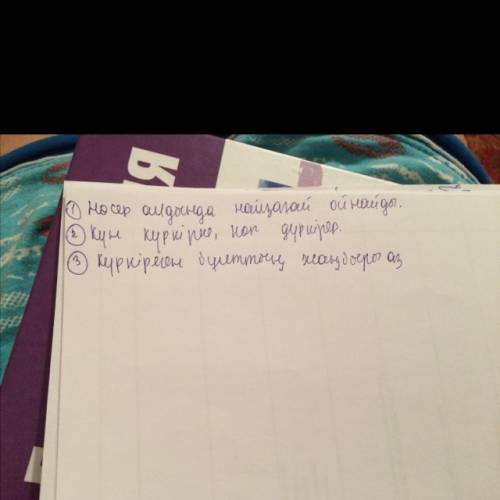 ① Нөсер алдында найзағай ойнайды.
② Күн күркірер, көк дүркірер.
③ Күркіреген бұлттың жаңбыры аз